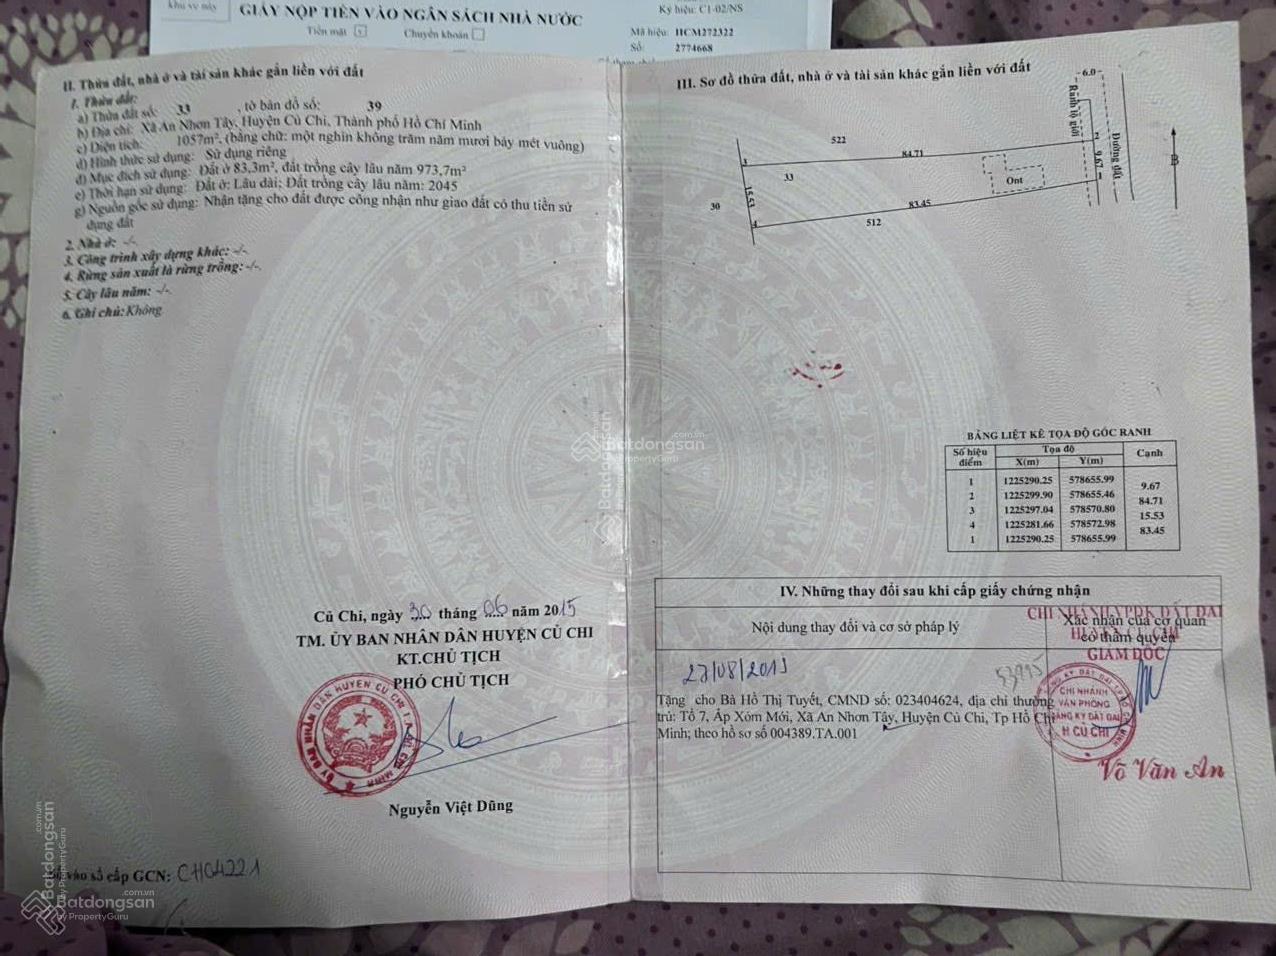 khu ve này
GIẤY NỘP TIỀN VÀO NGÂN SÁCH NHÀ NƯỚC
Tiền mặt x Chuyển khoản
Ký hiệu: C1-02/NS
Mã hiệu: HCM272322
Số: 2774668
II. Thửa đất, nhà ở và tài sản khác gắn liền với đất
1. Thửa đất:
a) Thửa đất số: 33 , tờ bản đồ số: 39
b) Địa chỉ: Xã An Nhơn Tây, Huyện Củ Chi, Thành phố Hồ Chí Minh
c) Diện tích: 1057m², (bằng chữ: một nghìn không trăm năm mươi bảy mét vuông)
d) Hình thức sử dụng: Sử dụng riêng
đ) Mục đích sử dụng: Đất ở 83,3m², đất trồng cây lâu năm 973,7m²
e) Thời hạn sử dụng: Đất ở: Lâu dài; Đất trồng cây lâu năm: 2045
g) Nguồn gốc sử dụng: Nhận tặng cho đất được công nhận như giao đất có thu tiền sử
dụng đất
2. Nhà ở: -/-.
3. Công trình xây dựng khác: -/-.
4. Rừng sản xuất là rừng trồng: -/-.
5. Cây lâu năm: -/-.
6. Ghi chú: Không
Củ Chi, ngày 30 tháng 06 năm 2015
TM. ỦY BAN NHÂN DÂN HUYỆN CỦ CHI
KT.CHỦ TỊCH
PHÓ CHỦ TỊCH
ỦY BAN NHÂN DÂN HUYỆN CỦ CHI
Nguyễn Việt Dũng
vào sổ cấp GCN: CH04221
III. Sơ đồ thửa đất, nhà ở và tài sản khác gắn liền với đất
6.0
Ranh lộ giới
Đường đất
B
522
84.71
3
2
33
9.67
Ont
15.53
30
83.45
1
4
512
BẢNG LIỆT KÊ TỌA ĐỘ GÓC RANH
Số hiệu điểm Tọa độ Cạnh
X(m) Y(m)
1 1225290.25 578655.99
9.67
2 1225299.90 578655.46
84.71
3 1225297.04 578570.80
15.53
4 1225281.66 578572.98
83.45
1 1225290.25 578655.99
IV. Những thay đổi sau khi cấp giấy chứng nhận
Nội dung thay đổi và cơ sở pháp lý
Xác nhận của cơ quan
có thẩm quyền
CHI NHÁNH VPĐK ĐẤT ĐAI
GIÁM ĐỐC
Tặng cho Bà Hồ Thị Tuyết, CMND số: 023404624, địa chỉ thường
trú: Tổ 7, Ấp Xóm Mới, Xã An Nhơn Tây, Huyện Củ Chi, Tp Hồ Chí
Minh; theo hồ sơ số 004389.TA.001
CHI NHÁNH
VĂN PHÒNG
ĐĂNG KÝ ĐẤT ĐAI
H CỦ CHI
Võ Văn An
Batdongsan
.com.vn
by PropertyGuru
Batdongsan
.com.vn
by PropertyGuru
Batdongsan
.com.vn
by PropertyGuru
Batdongsan